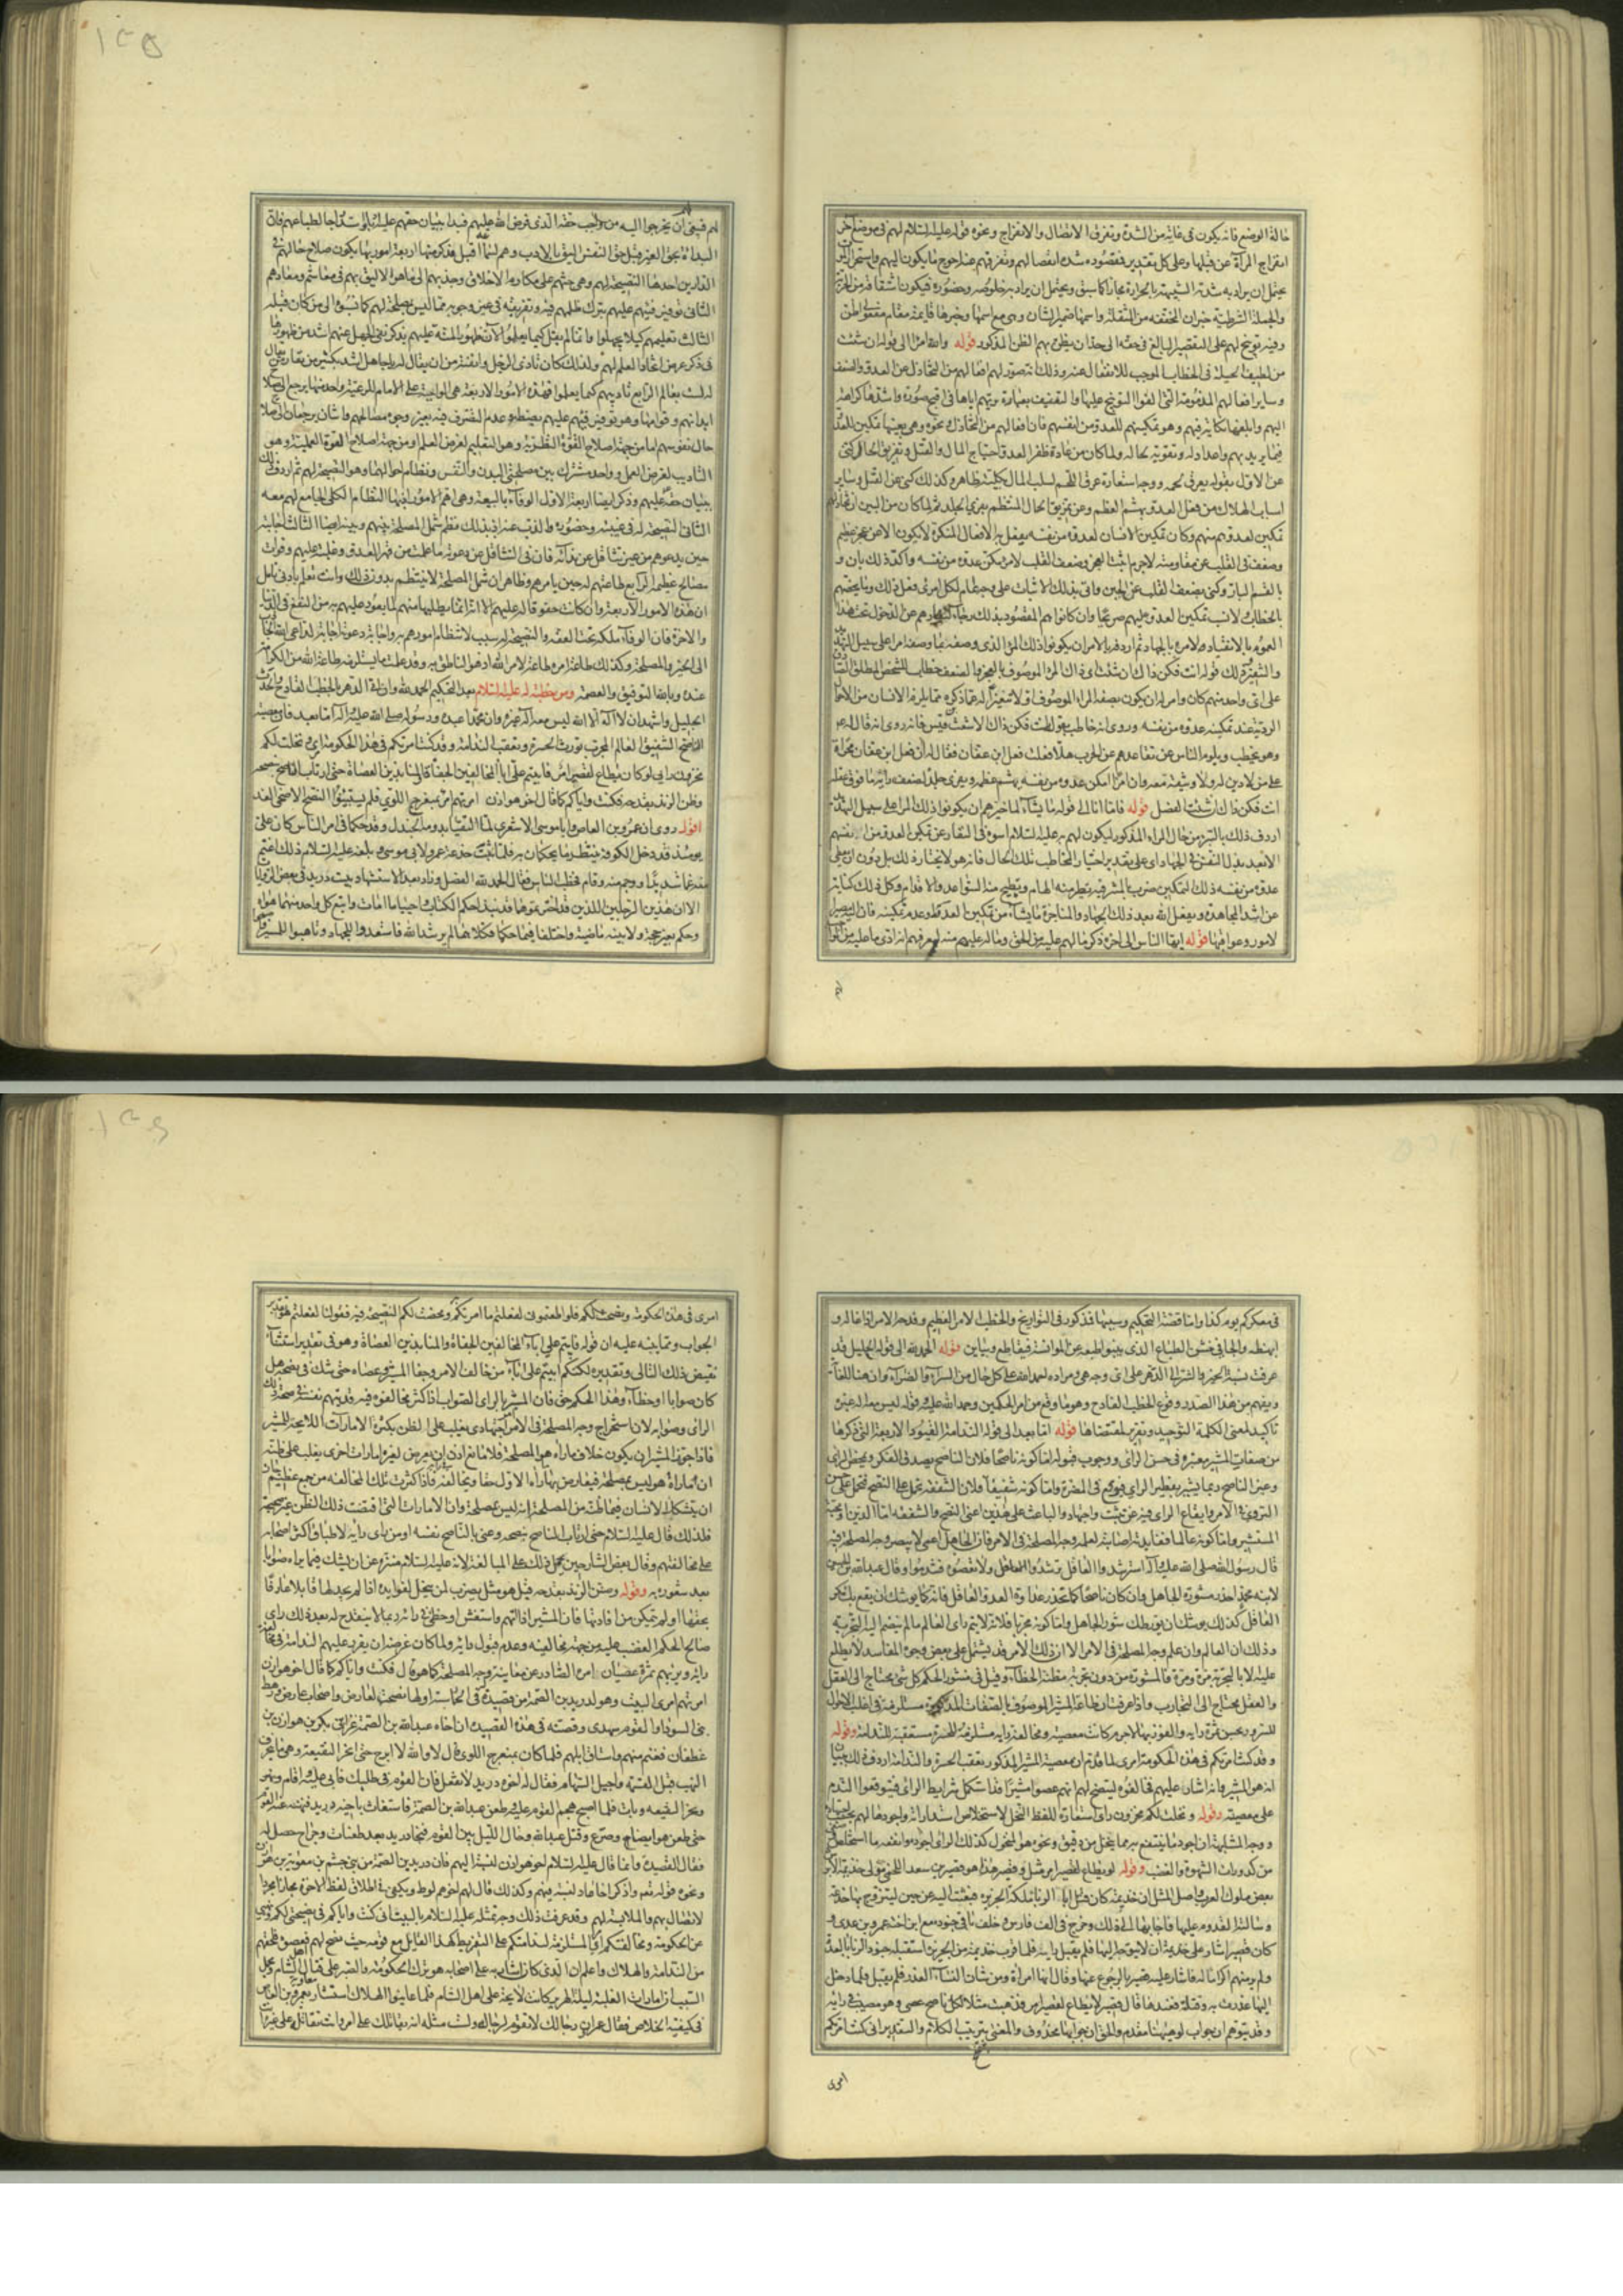 حالة الوضع فانه يكون فى غاية من الشدة وتفرق الاتصال والانفراج ونحوه قوله عليه السلام لهم فى موضع آخر
انفراج المرأة عن قبلها وعلى كل تقدير فمقصوده شدة انفصالهم وتفرقهم عنه احوج ما يكون اليهم واستحر الموت
يحتمل ان يراد به شدته الشبيهة بالحرارة مجازا كما سبق ويحتمل ان يراد به خلوصه وحضوره فيكون اشتقاقه من الحرية
والجملة الشرطية خبر ان المخففة من المثقلة واسمها ضمير الشان وهى مع اسمها وخبرها قايمة مقام مفعولى اظن
وفيه توبيخ لهم على التقصير البالغ فى حقه الى حد ان يظن بهم الظن المذكور قوله والله ان امرا الى قوله ان شئت
من لطيف الحيلة فى الخطاب الموجب للانفعال عنه وذلك انه صور لهم افعالهم من التخاذل عن العدو والضعف
وساير افعالهم المذمومة التى الفوا التوبيخ عليها والتعنيف بعبارة يريهم اياها فى اقبح صورة واشدها كراهة
اليهم وابلغها نكاية فيهم وهو تمكينهم للعدو من انفسهم فان افعالهم من التخاذل ونحوه وهى بعينها تمكين للعدو
فيما يريد بهم واعداد له وتقوية لحاله ولما كان من عادة ظفر العدو احتياج المال والقتل وتفريق الحال كنى
عن الاول بقوله يعرق لحمه ووجه استعارة عرق اللحم لسلب المال بكليته ظاهر وكذلك كنى عن القتل وساير
اسباب الهلاك من فعل العدو بهشم العظم وعن تمزيق الحال المنتظم بفرى الجلد ثم لما كان من البين ان تخاذلهم
تمكين لعدوهم منهم وكان تمكين الانسان لعدوه من نفسه يفعل به الافعال المنكرة لا يكون الا عن عجز عظيم
وضعف فى القلب عن مقاومته لا جرم اثبت العجز وضعف القلب لامرء مكن عدوه من نفسه واكد ذلك بان و
بالقسم البار وكنى بضعف القلب عن الجبن وانى بذلك الاثبات على وجه عام لكل امرئ فعل ذلك ولم يخصهم
بالخطاب ولا نسب تمكين العدو عليهم صريحا وان كانوا هم المقصودين بذلك رجاء لنفارهم عن الدخول تحت هذا
العموم بالانقياد لامره بالجهاد ثم اردفه بالامر ان يكونوا ذلك المرء الذى وصفه بما وصفه امرا على سبيل التهديد
والتنفير وذلك قوله انت فكن ذاك ان شئت اى ذاك المرء الموصوف بالعجز والضعف خطاب للشخص المطلق الصادق
على اى واحد منهم كان وامر له ان يكون بصفة المرء الموصوف اولا تنفيرا له عما ذكره مما يلزم الانسان من الاحوال
الردية عند تمكينه عدوه من نفسه وروى انه خاطب بقوله انت فكن ذاك الاشعث بن قيس فانه روى انه قال له
وهو يخطب ويلوم الناس عن تقاعدهم عن الحرب هلا فعلت فعل ابن عفان فقال له ان فعل ابن عفان مخزاة
على من لا دين له ولا وثيقة معه وان امرا امكن عدوه من نفسه يهشم عظمه ويفرى جلده لضعف رايه مافون عقله
انت فكن ذاك ان شئت الفصل قوله فاما انا الى قوله ما يشاء لما خيرهم ان يكونوا ذلك المرء على سبيل التهديد
اردف ذلك بالتبرى من حال المرء المذكور ليكون لهم به عليه السلام اسوة فى النفار عن تمكين العدو من انفسهم
الا بعد بذل النفس فى الجهاد اى على تقدير اختيار المخاطب تلك الحال فانه هو لا يختار ذلك بل دون ان يعطى
عدوه من نفسه ذلك التمكين ضرب بالمشرفية يطير منه الهام وتطيح منه السواعد والاقدام وكل ذلك كناية
عن اشد المجاهدة ويفعل الله بعد ذلك الجهاد والمناجزة ما يشاء من تمكين العدو وعدم تمكينه فان اليه مصير
الامور وعواقبها قوله ايها الناس الى آخره ذكر ما لهم عليه من الحق وما له عليهم منه ليعرفهم انه ادى ما عليه من الحق
لهم
لهم فبقى ان يخرجوا اليه من واجب حقه الذى فرض الله عليهم فبدا ببيان حقهم عليه استدراجا لطباعهم فان
البداءة بحق الغير قبل حق النفس اليق بالادب وهم لسماعه اقبل فذكر منها اربعة امور بها يكون صلاح حالهم فى
الدارين احدها النصيحة لهم وهى حثهم على مكارم الاخلاق وجذبهم الى ما هو الاليق بهم فى معاشهم ومعادهم
الثانى توفير فيئهم عليهم بترك ظلمهم فيه وتفريقه فى غير وجوهه مما ليس بمصلحة لهم كما نسبوه الى من كان قبله
الثالث تعليمهم كيلا يجهلوا وانما لم يقل كيما يعلموا لان ظهور المنة عليهم بذكر نفى الجهل عنهم اشد من ظهورها
فى ذكر عرض ايجاد العلم لهم ولذلك كان تاذى الرجل وانفته من ان يقال له يا جاهل اشد بكثير من تقار من يقال
له لست بعالم الرابع تاديبهم كيما يعلموا فهذه الامور الاربعة هى الواجبة على الامام للرعية واحد منها يرجع الى صلاح
ابدانهم وقوامها وهو توفير فيئهم عليهم بضبطه وعدم التصرف فيه بغير وجوه مصالحهم واثنان يرجعان الى صلاح
حال نفوسهم اما من جهة اصلاح القوة النظرية وهو التعليم لغرض العلم او من جهة اصلاح القوة العملية وهو
التاديب لغرض العمل وواحد مشترك بين مصلحتى البدن والنفس ونظام احوالهما وهو النصيحة لهم ثم اردف ذلك
ببيان حقه عليهم وذكر ايضا اربعة الاول الوفاء بالبيعة وهى اهم الامور اذ بها النظام الكلى الجامع لهم معه
الثانى النصيحة له فى غيبته وحضوره والذب عنه اذ بذلك نظم شمل المصلحة بينهم وبينه ايضا الثالث اجابته
حين يدعوهم من غير تثاقل عن ندائه فان فى التثاقل عن دعوته ما علمت من قهر العدو وغلبته عليهم وفوات
مصالح عظيمة الرابع طاعتهم له حين يامرهم وظاهر ان شمل المصلحة لا ينتظم بدون ذلك وانت تعلم بادنى تامل
ان هذه الامور الاربعة وان كانت حقوقا له عليهم الا انه انما يطلبها منهم لما يعود عليهم به من النفع فى الدنيا
والاخرة فان الوفاء ملكة تحت العفة والنصيحة له سبب لانتظام امورهم به واجابة دعوته اجابة لداعى الله
الى الخير والمصلحة وكذلك طاعة امره طاعة لامر الله اذ هو الناطق به وقد علمت ما يستلزمه طاعة الله من الكرامة
عنده وبالله التوفيق والعصمة ومن خطبة له عليه السلام بعد التحكيم الحمد لله وان اتى الدهر بالخطب الفادح والحدث
الجليل واشهد ان لا اله الا الله ليس معه اله غيره وان محمدا عبده ورسوله صلى الله عليه وآله اما بعد فان معصية
الناصح الشفيق العالم المجرب تورث الحسرة وتعقب الندامة وقد كنت امرتكم فى هذه الحكومة امرى ونخلت لكم
مخزون رايى لو كان يطاع لقصير امر فابيتم على اباء المخالفين الجفاة والمنابذين العصاة حتى ارتاب الناصح بنصحه
وظن الزند بقدحه فكنت واياكم كما قال اخو هوازن امرتهم امرى بمنعرج اللوى فلم يستبينوا النصح الا ضحى الغد
اقول روى ان عمرو بن العاص وابا موسى الاشعرى لما التقيا بدومة الجندل وقد حكما فى امر الناس كان على
يومئذ قد دخل الكوفة ينتظر ما يحكمان به فلما تمت خدعة عمرو لابى موسى وبلغه عليه السلام ذلك اغتم
غما شديدا ووجم منه وقام فخطب الناس فقال الحمد لله الفصل وزاد بعد الاستشهاد ببيت دريد فى بعض الروايات
الا ان هذين الرجلين اللذين قد اخترتموهما قد نبذا حكم الكتاب واحييا ما امات واتبع كل واحد منهما هواه
وحكم بغير حجة ولا بينة ماضية واختلفا فيما حكما فكلاهما لم يرشد الله فاستعدوا للجهاد وتاهبوا للمسير واصبحوا
فى معسكركم يوم كذا واما قصة التحكيم وسببها فمذكور فى التواريخ والخطب الامر العظيم وفدحه الامر اذا غاله و
ابهظه والجافى خشن الطباع الذى ينبو طبعه عن الموانسة فيقاطع ويباين قوله الحمد لله الى قوله الجليل قد
عرفت نسبة الخير والشر الى الدهر على اى وجه هى ومراده احمد الله على كل حال من السراء والضراء وان هنا للغاية
ويفهم من هذا الصدر وقوع الخطب الفادح وهو ما وقع من امر الحكمين وحمد الله عليه وقوله ليس معه اله غيره
تاكيد لمعنى كلمة التوحيد وتقرير لمقتضاها قوله اما بعد الى قوله الندامة القيود الاربعة التى ذكرها
من صفات المشير معتبرة فى حسن الراى ووجوب قبوله اما كونه ناصحا فلان الناصح يصدق الفكر ويمحض الراى
وغير الناصح ربما يشير بفطير الراى فيوقع فى المضرة واما كونه شفيقا فلان الشفقة تحمل على النصح فتحمل على حسن
التروى فى الامر وايقاع الراى فيه عن تثبت واجتهاد والباعث على هذين اعنى النصح والشفقة اما الدين او محبة
المستشير واما كونه عالما ففايدته اصابته لعلمه وجه المصلحة فى الامر فان الجاهل اعمى لا يبصر وجه المصلحة فيه
قال رسول الله صلى الله عليه وآله استرشدوا العاقل ترشدوا ولا تعصوه فتندموا وقال عبد الله بن الحسن
لابنه محمد احذر مشورة الجاهل وان كان ناصحا كما تحذر عداوة العدو العاقل فانه كما يوشك ان يقع بك مكر
العاقل كذلك يوشك ان يورطك شور الجاهل واما كونه مجربا فلانه لا يتم راى العالم ما لم ينضم اليه التجربة
وذلك ان العالم وان علم وجه المصلحة فى الامر الا ان ذلك الامر قد يشتمل على بعض وجوه المفاسد لا يطلع
عليه الا بالتجربة مرة ومرة فالمشورة من دون تجربة مظنة الخطاء وقيل فى منثور الحكم كل شئ يحتاج الى العقل
والعقل يحتاج الى التجارب واذا عرفت ان طاعة المشير الموصوف بالصفات المذكورة مستلزمة فى اغلب الاحوال
للسرور بحسن ثمرة رايه والفوز بها لا جرم كانت معصيته ومخالفة رايه مستلزمة للحسرة مستعقبة للندامة وقوله
وقد كنت امرتكم فى هذه الحكومة امرى لما قدم ان معصية المشير المذكور تعقب الحسرة والندامة اردف ذلك ببيان
انه هو المشير وانه اشار عليهم فخالفوه ليتضح لهم انهم عصوا مشيرا قد استكمل شرايط الراى فيتوقعوا الندم
على معصيته وقوله ونخلت لكم مخزون رايى استعارة للفظ النخل لاستخلاص اسد ارائه واجودها لهم بحسب اجتهاده
ووجه المشابهة ان اجود ما ينتفع به مما ينخل من دقيق ونحوه هو المنخول كذلك الراى اجوده وانفعه ما استخلص
من كدورات الشهوة والغضب وقوله لو يطاع لقصير امر مثل وقصير هذا هو قصير بن سعد اللخمى مولى جذيمة الابرش
بعض ملوك العرب واصل المثل ان جذيمة كان قتل ابا الزباء ملكة الجزيرة فبعثت اليه عن حين ليتزوج بها خدعة
وسالته القدوم عليها فاجابها الى ذلك وخرج فى الف فارس وخلف باقى جنوده مع ابن اخته عمرو بن عدى و
كان قصير اشار على جذيمة ان لا يتوجه اليها فلم يقبل رايه فلما قرب جذيمة من الجزيرة استقبله جنود الزباء بالعدة
ولم ير منهم اكراما له فاشار عليه قصير بالرجوع عنها وقال انها امرأة ومن شان النساء الغدر فلم يقبل فلما دخل
اليها غدرت به وقتلته فعندها قال قصير لا يطاع لقصير امر فذهبت مثلا لكل ناصح عصى وهو مصيب فى رايه
وقد يتوهم ان جواب لو هيهنا مقدم والحق ان جوابها محذوف والمعنى بترتيب الكلام والتقدير انى كنت امرتكم
امرى
امرى فى هذه الحكومة ونصحت لكم فلو اطعتمونى لفعلتم ما امرتكم ومحضت لكم النصيحة فيه فقولنا لفعلتم هو تقدير
الجواب ومما ينبه عليه ان قوله فابيتم على اباء المخالفين الجفاة والمنابذين العصاة وهو فى تقدير استثناء
نقيض ذلك التالى وتقديره لكنكم ابيتم على اباء من خالف الامر وجفا المشير وعصاه حتى شك فى نصحه هل
كان صوابا او خطاء وهذا الحكم حق فان المشير بالراى الصواب اذا كثر مخالفوه فيه قد يتهم نفسه فى صحة ذلك
الراى وصوابه لان استخراج وجه المصلحة فى الامر اجتهادى يغلب على الظن بكثرة الامارات اللايحة للمشير
فاذا جوز المشير ان يكون خلاف ما راه هو المصلحة فلا مانع اذن ان يعرض لغيره امارات اخرى يغلب على ظنه
ان ما راه هو ليس بمصلحة فيعارض بها ما راه الاول حقا ويخالفه فاذا كثرت تلك المخالفة من جمع عظيم
ان يتشكك الانسان فيما ظنه من المصلحة انه ليس بمصلحة وان الامارات التى اقتضت ذلك الظن غير صحيحة
فلذلك قال عليه السلام حتى ارتاب الناصح بنصحه وعنى بالناصح نفسه او من راى رايه لاطباق اكثر اصحابه
على مخالفتهم وقال بعض الشارحين يحمل ذلك على المبالغة لانه عليه السلام منزه عن ان يشك فيما يراه صوابا
بعد شعوره به وقوله وضن الزند بقدحه قيل هو مثل يضرب لمن يبخل بفوايده اذا لم يجد لها قابلا عارفا
بحقها او لم يتمكن من افادتها فان المشير اذا اتهم واستغش او خطئ فى رايه ربما لا ينقدح له بعد ذلك راى
صالح لحكم الغضب عليه من جهة مخالفته وعدم قبول رايه ولما كان غرضه ان يقرر عليهم الندامة فى مخالفة
رايه ويريهم ثمرة عصيان امره الصادر عن معاينة وجه المصلحة كما هو قال فكنت واياكم كما قال اخو هوازن
امرتهم امرى البيت وهو لدريد بن الصمة من قصيدة فى الحماسة اولها نصحت لعارض واصحاب عارض ورهط
بنى السوداء والقوم شهدى وقصته فى هذه القصيدة ان اخاه عبد الله بن الصمة غزا بنى بكر بن هوازن بن
غطفان فغنم منهم واستاق ابلهم فلما كان بمنعرج اللوى قال لا والله لا ابرح حتى انحر النقيعة وهى ما ينحر من
النهب قبل القسمة واجيل السهام فقال له اخوه دريد لا تفعل فان القوم فى طلبك فابى عليه واقام ونحر
ونحر النقيعة وبات فلما اصبح هجم القوم عليه وطعن عبد الله بن الصمة فاستغاث باخيه دريد فنهنه عنه القوم
حتى طعن هو ايضا وصرع وقتل عبد الله وحال الليل بين القوم فنجا دريد بعد طعنات وجراح حصل له
فقال القصيدة وانما قال عليه السلام اخو هوازن لنسبته اليهم فان دريد بن الصمة من بنى جشم بن معوية بن هوازن
ونحوه قوله تعالى واذكر اخا عاد لنسبه فيهم وكذلك قال لهم اخوهم لوط ويكفى فى اطلاق لفظ الاخوة مجازا مجرد
الاتصال بهم والملابسة لهم وقد عرفت ذلك وجه تمثله عليه السلام بالبيت انى كنت واياكم فى نصيحتى لكم ونهيى
عن الحكومة ومخالفتكم اياى المستلزمة لندامتكم على التفريط كهذا القايل مع قومه حيث نصح لهم فعصوه فلحقهم
من الندامة والهلاك واعلم ان الذى كان اشار به على اصحابه هو ترك الحكومة والصبر على قتال اهل الشام
السبب ان امارات الغلبة ليلة الهرير كانت لايحة على اهل الشام فلما عاينوا الهلاك استشار معاوية عمرو بن العاص
فى كيفية الخلاص فقال عمرو ان رجالك لا تقوم لرجاله ولست مثله انه يقاتلك على امر وانت تقاتله على غيره